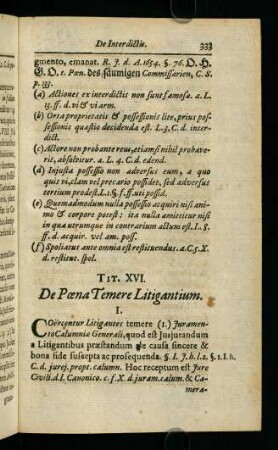 De Interdictis. 333
gmento, emanat. R. J. d. A. 1654. §. 76. O. H.
G. O, t. Pœn. des säumigen Commissarien, C. S.
p. 33.
(a) Actiones ex interdictis non sunt famosæ. a. L.
13. ff. d. vi & vi arm.
(b) Orta proprietatis & possessionis lite, prius pos-
sessionis quæstio decidenda est. L. 3. C. d. inter-
dict.
(c) Actore non probante reus, etiamsi nihil probave-
rit, absolvitur. a L. 4. C. d. edend.
(d) Injusta possessio non adversus eum, a quo
quis vi, clam vel precario possidet, sed adversus
tertium prodest. L. 1. §. f. ff. uti possid.
(e) Quemadmodum nulla possessio acquiri nisi ani-
mo & corpore potest: ita nulla amittitur nisi in
qua utrumque in contrarium actum est. L. 8.
ff. d. acquir. vel am. poss.
(f) Spoliatus ante omnia est restituendus. a C. 5. X.
d. restitut. spol.
TIT. XVI.
De Pœna Temere Litigantium.
I.
COërcentur Litigantes temere (1.) Juramen-
to Calumniæ Generali, quod est Jusjurandum
a Litigantibus præstandum de causa sincere &
bona fide suscepta ac prosequenda. §. I. J. h. t. §. 1. I. h.
C. d. jurej. propt. calumn. Hoc receptum est Jure
Civili d. l. Canonico. c. f. X. d. juram. calum. & Ca-
mera-